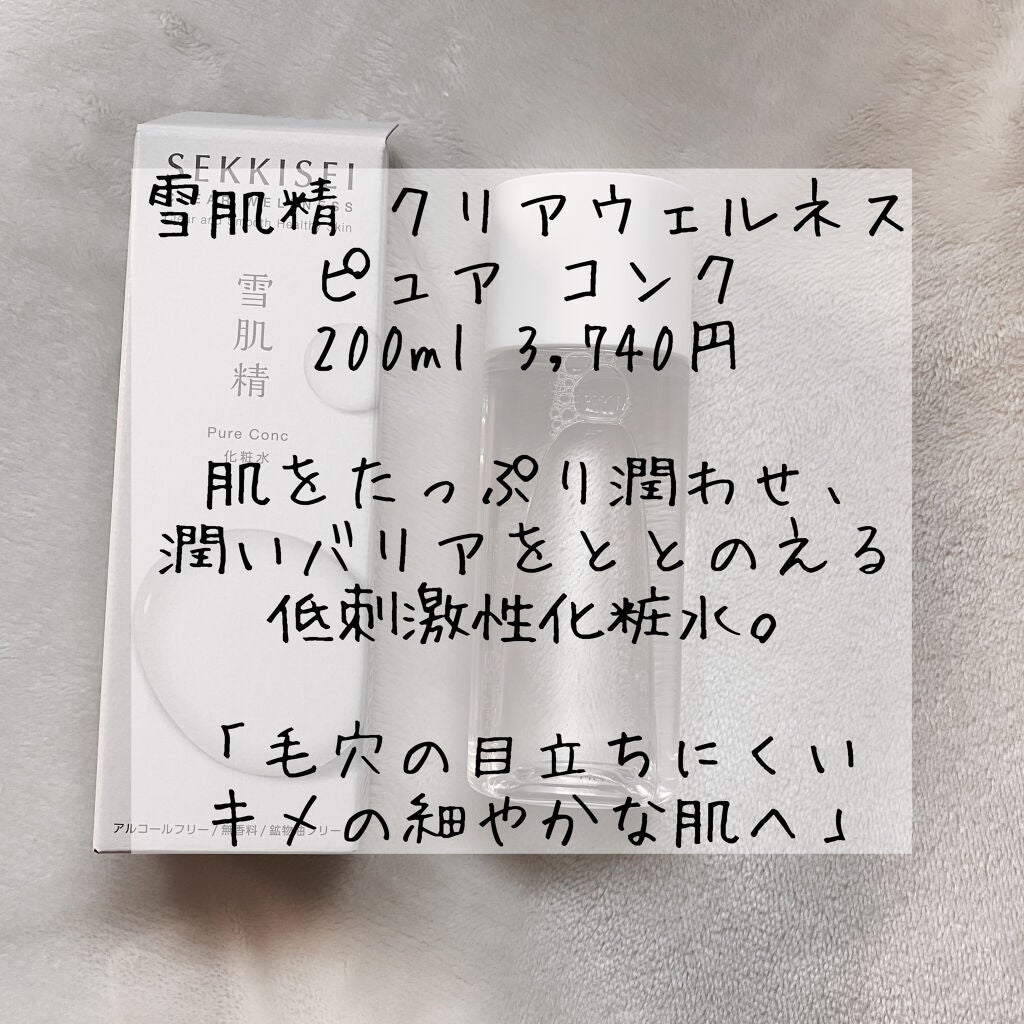 SEKKISEI
CLEAR WELLNESS
Clear and Smooth Healthy Skin
雪肌精
Pure Conc
化粧水
アルコールフリー/無香料/鉱物油フリー
雪肌精 クリアウェルネス
ピュア コンク
200ml 3,740円
肌をたっぷり潤わせ、
潤いバリアをととのえる
低刺激性化粧水。
「毛穴の目立ちにくい
キメの細やかな肌へ」